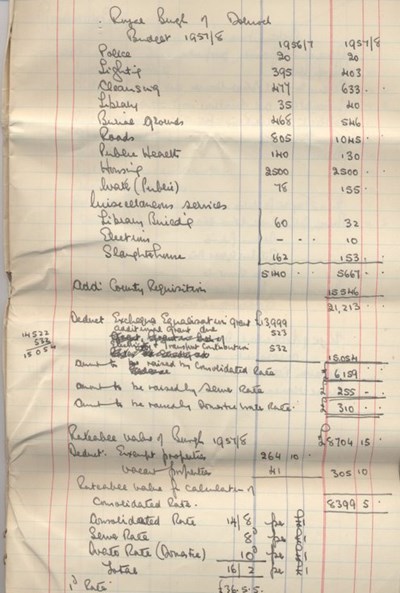 Royal Burgh of Dornoch
Budget 1957/8
1956/7 1957/8
Police 20 20
Lighting 395 403
Cleansing 477 633
Library 35 40
Burial Grounds 468 546
Roads 805 1045
Public Health 140 130
Housing 2500 2500
(Public) 78 155
Miscellaneous services
Library Building 60 32
Elections - 10
Slaughterhouse 162 153
5140 5667
Add: County Requisition 15546
21,213
Deduct Exchequer Equalisation Grant £13,999
additional grant due 523
14522
532
15054
Transport Contribution 532
15054
Amount to be raised by Consolidated Rate £ 6159
Amount to be raised by Sewer Rate 255 -
Amount to be raised by Domestic Water Rate 310
Rateable value of Burgh 1957/8 £8704 15
Deduct: Exempt properties 264 10
vacant properties 41 305 10
Rateable value for calculation of
Consolidated Rate. 8399 5
Consolidated Rate 14/8 per £
Sewer Rate 8 per £
Water Rate (Domestic) 10 per £
Total 16/2 per £
1d Rate £36.5.5.